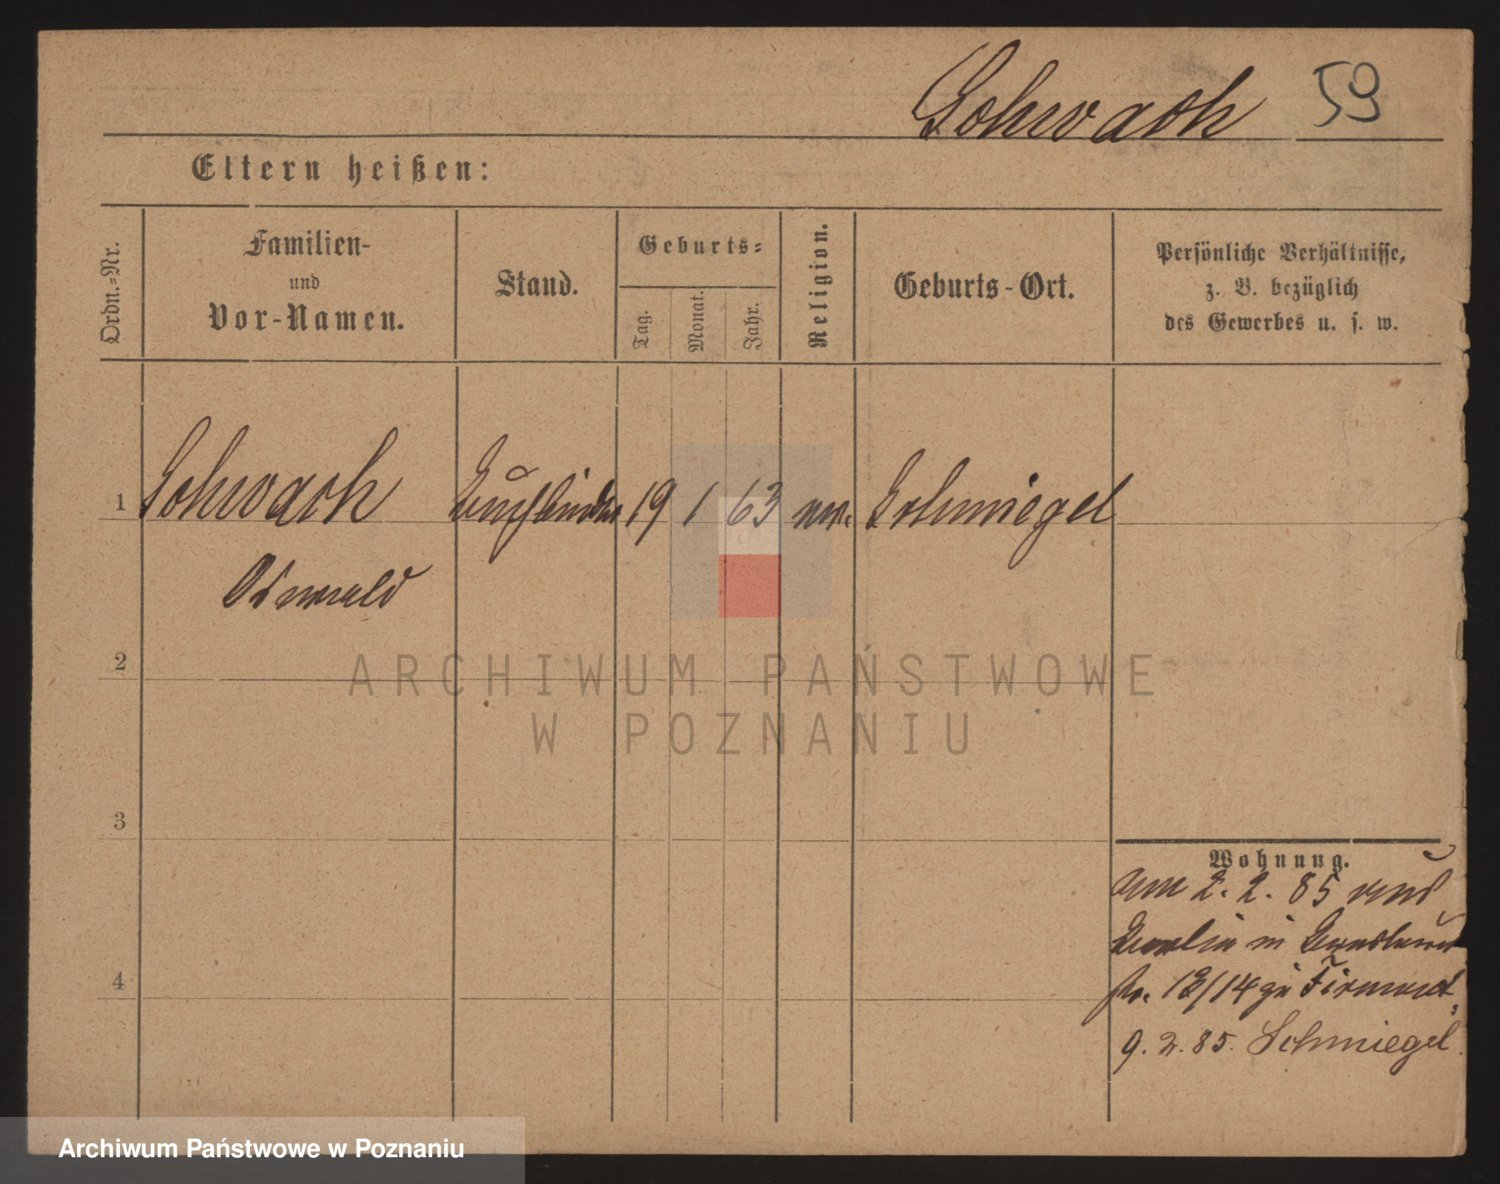 Schwach 59
Eltern heißen:
Ordn.-Nr.
Familien-
und
Vor-Namen.
Stand.
Geburts-
Tag.
Monat.
Jahr.
Religion.
Geburts-Ort.
Persönliche Verhältnisse,
z. B. bezüglich
des Gewerbes u. s. w.
1 Schwach Buchbinder 19 1 63 Schmiegel
Oswald
2
3
4
Wohnung.
am 2. 2. 85 aus
Berlin in
13/14 zu
9. 2. 85. Schmiegel.
ARCHIWUM PAŃSTWOWE
W POZNANIU
Archiwum Państwowe w Poznaniu